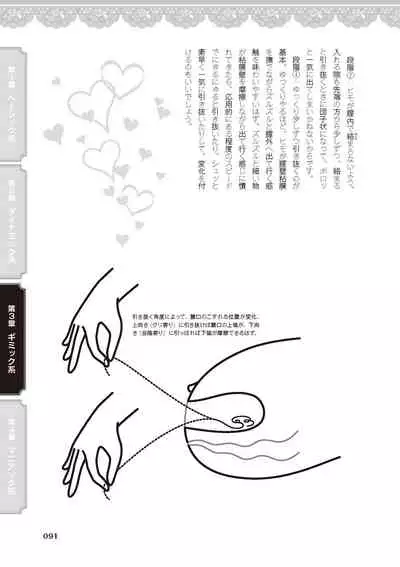 段階② ヒモが膣内で絡まないよう、
入れる際も先端の方から少しずつ。絡まる
と引き抜くときに団子状になって、ボロッ
と一気に出てしまいかねないからです。
段階③ ゆっくり少しずつ引き抜くのが
基本。ゆっくりやるほど、ヒモが膣壁粘膜
を擦りながらズルズルと膣外へ出て行く感
触を味わいやすいはず。ズルズルと細い物
が粘膜壁を摩擦しながら出て行く感じに慣
れてきたら、応用的にある程度のスピード
でにゅるにゅると引き抜いたり、シュッと
素早く一気に引き抜いたりして、変化を付
けるのもいいでしょう。
第1章 ベーシック系
第2章 ダイナミック系
第3章 ギミック系
第4章 マニアック系
引き抜く角度によって、膣口のこすれる位置が変化。
上向き(クリ寄り)に引き抜けば膣口の上端が、下向
き(会陰寄り)に引っぱれば下端が摩擦できるはず。
091